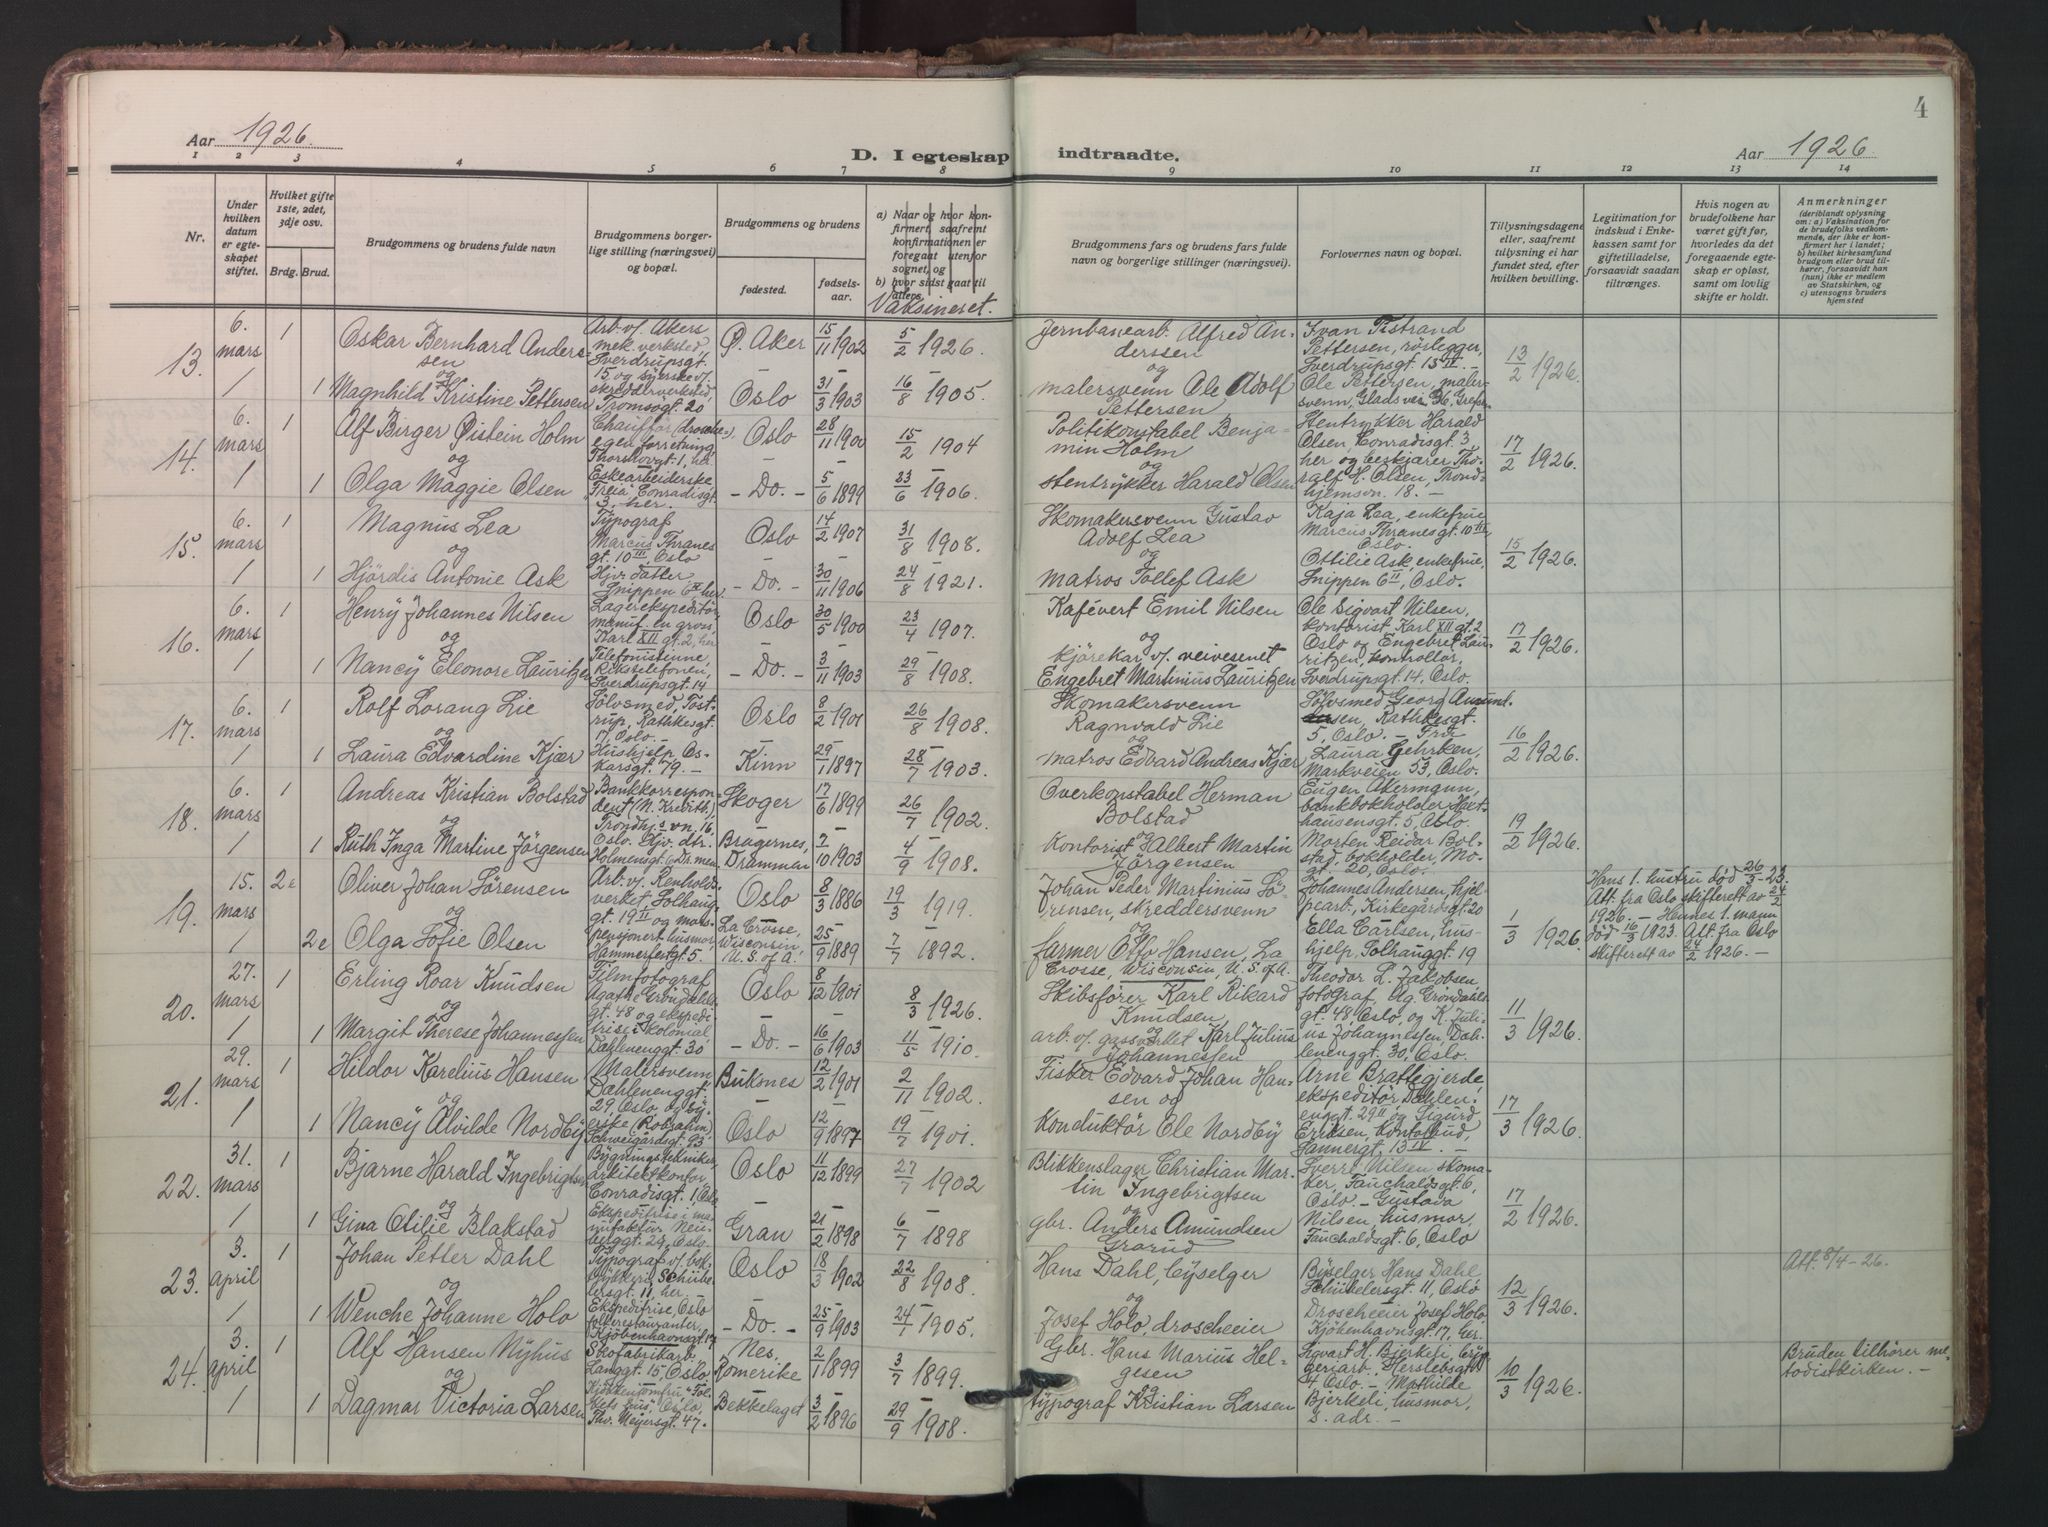 4
Aar 1926.
D. I egteskap indtraadte.
Aar 1926.
1 2 3 4 5 6 7 8 9 10 11 12 13 14
Nr.
Under hvilken datum er egteskapet stiftet.
Hvilket gifte 1ste, 2det, 3dje osv.
Brdg. Brud.
Brudgommens og brudens fulde navn
Brudgommens borgerlige stilling (næringsvei) og bopæl.
Brudgommens og brudens
fødested.
fødselsaar.
a) Naar og hvor konfirmert, saafremt konfirmationen er foregaat utenfor sognet, og
b) hvor sidst gaat til alters.
Vaksineret.
Brudgommens fars og brudens fars fulde navn og borgerlige stillinger (næringsvei).
Forlovernes navn og bopæl.
Tillysningsdagene eller, saafremt tillysning ei har fundet sted, efter hvilken bevilling.
Legitimation for indskud i Enkekassen samt for giftetilladelse, forsaavidt saadan tiltrænges.
Hvis nogen av brudefolkene har været gift før, hvorledes da det foregaaende egteskap er opløst, samt om lovlig skifte er holdt.
Anmerkninger
(deriblandt oplysning om: a) Vaksination for de brudefolks vedkommende, der ikke er konfirmert her i landet; b) hvilket kirkesamfund brudgom eller brud tilhører, forsaavidt han (hun) ikke er medlem av Statskirken, og c) utensogns bruders hjemsted
13. 6. mars 1 Oskar Bernhard Anderssen Arb. v/. Akers mek. verksted Sverdrupsgt. 15 Ø. Aker 15/11 1902 5/2 1926. Jernbanearb. Alfred Anderssen Ivan Tistrand Pettersen, rørlegger, Sverdrupsgt. 15 II. 13/2 1926.
og
1 1 Magnhild Kristine Pettersen og syerske v/. skrædderverksted, Tromsøgt. 20 Oslo 31/3 1903 16/8 1905. malersvenn Ole Adolf Pettersen Ole Pettersen, malersvenn, Gladsvei 36,
14. 6. mars 1 Alf Birger Øistein Holm Chauffør (drosche), egen forretning, Thorshovgt. 1, her Oslo 28/11 1900 15/2 1904 Politikonstabel Benjamin Holm Stentrykker Harald Olsen, Conradisgt. 3, her og beskjærer Thoralf H. Olsen, Trondhjemsvn. 18. 17/2 1926.
og
1 1 Olga Maggie Olsen Eskearbeiderske "Freia" Conradisgt. 3. her. - Do. - 5/6 1899 23/6 1906. stentrykker Harald Olsen
15. 6. mars 1 Magnus Lea Typograf Marcus Thranes gt. 10 III, Oslo Oslo 14/2 1907 31/8 1908. Skomakersvenn Gustav Adolf Lea Kaja Lea, enkefrue Marcus Thranesgt. 10 III, Oslo. 15/2 1926.
og
1 1 Hjördis Antonie Ask Hjv. datter Snippen 6 II her - Do. - 30/11 1906 24/8 1921. matros Tollef Ask Ottilie Ask, enkefrue, Snippen 6 II, Oslo.
16. 6. mars 1 Henry Johannes Nilsen Lagerekspeditør, manuf. en gros, Karl XII gt. 2, her Oslo 30/5 1900 23/4 1907. Kafévert Emil Nilsen Ole Sigvart Nilsen, kontorist Karl XII gt. 2 Oslo og Engebret Lauritzen, kontrollør, Sverdrupsgt. 14, Oslo. 17/2 1926.
og
1 1 Nancy Eleonore Lauritzen Telefonistinne, Rikstelefonen, Sverdrupsgt. 14 - Do. - 3/11 1903 29/8 1908. kjørekar v/. veivesenet Engebret Martinius Lauritzen
17. 6. mars 1 Rolf Lorang Lie Sölvsmed, Tostrup, Rathkesgt. 17, Oslo. Oslo 8/2 1901 26/8 1908. Skomakersvenn Ragnvald Lie Sölvsmed Georg Amundsen, Rathkesgt. 5, Oslo. - Fru Laura Gehrken, Markveien 53, Oslo. 16/2 1926.
og
1 1 Laura Edvardine Kjær Hushjelp Oskarsgt. 79. - Kinn 29/1 1897 28/7 1903. matros Edvard Andreas Kjær
18. 6. mars 1 Andreas Kristian Bolstad Bankkorrespondent (N. Kreditb.), Trondhj.s vn. 16, Oslo. Skoger 17/6 1899 26/7 1902. Overkonstabel Herman Bolstad Eugen Akermann, bankbokholder, Haxthausensgt. 5, Oslo. 19/2 1926.
og
1 1 Ruth Inga Martine Jörgensen Hjv. dtr. Holmensgt. 6 Drammen Bragernes, Drammen 7/10 1903 4/9 1908. Kontorist Albert Martin Jörgensen Morten Reidar Bolstad, bokholder, Mogt. 20, Oslo.
19. 15. mars 2e Oliver Johan Sörensen Arb. v/. Renholdsverket, Solhauggt. 19 I Oslo 8/3 1886 19/3 1919. Johan Peder Martinius Sörensen, skreddersvenn Johannes Andersen, hjelpearb., Kirkegårdsgt. 20 1/3 1926. Hans 1. hustru död 26/3-23. Att. fra Oslo skifterett av 24/2 1926. - Hennes 1. mann död 16/3 1923. Att. fra Oslo skifterett av 24/2 1926. -
og
1 2e Olga Sofie Olsen og pensjonert husmor, Hammerfestgt. 5. La Crosse, Wisconsin U. S. of A. 25/9 1889 7/7 1892. farmer Otto Hansen, La Crosse, Wisconsin, U. S. of A. Ella Carlsen, hushjelp, Solhauggt. 19
20. 27. mars 1 Erling Roar Knudsen Filmfotograf Agathe Gröndahls gt. 48 Oslo 8/12 1901 8/3 1926. Skibsförer Karl Rikard Knudsen Theodor L. Jakobsen, fotograf, Ag. Gröndahls gt. 48 Oslo, og K. Julius Johannessen, Dahlenenggt. 30, Oslo. 11/3 1926.
og
1 1 Margit Therese Johannessen og ekspeditrise i kolonial, Dahlenenggt. 30 - Do. - 16/6 1903 11/5 1910. arb. v/. gassverket Karl Julius Johannessen
21. 29. mars 1 Hildor Karelius Hansen Malersvenn Dahlenenggt. 29, Oslo, Buksnes 12/2 1901 2/11 1902. Fisker Edvard Johan Hansen og Arne Brattegjerde, ekspeditör, Dahlenenggt. 29 II, og Sigurd Eriksen, kontorbud, Sannergt. 13 IV. - 17/3 1926.
og
1 1 Nancy Alvilde Nordby og syerske (Robsahm) Schweigårdsgt. 93. Oslo 12/9 1897 19/7 1901. Konduktör Ole Nordby
22. 31. mars 1 Bjarne Harald Ingebrigtsen Bygningstekniker, arkitektkontor, Conradisgt. 1, Oslo Oslo 11/12 1899 27/7 1902 Blikkenslager Christian Martin Ingebrigtsen Sverre Nilsen skomaker, Fauchaldsgt. 6, Oslo. - Gustava Nilsen, husmor, Fauchaldsgt. 6, Oslo 17/2 1926.
og
1 1 Gina Otilie Blakstad Ekspeditrise i manufaktur, Neuberggt. 24, Oslo. Gran 21/2 1898 6/7 1898 gbr. Anders Amundsen Grorud
23. 3. april 1 Johan Petter Dahl Typograf v/. boktrykkeri, Schübelersgt. 11, her. Oslo 18/3 1902 22/8 1908. Hans Dahl, byselger Byselger Hans Dahl Schübelersgt. 11, Oslo 12/3 1926. Att. 8/4-26.
og
1 1 Wenche Johanne Holo Ekspeditrise, Oslo folkerestauranter, Kjöbenhavnsgt. 17 - Do. - 25/9 1903 24/7 1905. Josef Holo, droscheeier Droscheeier Josef Holo, Kjöbenhavnsgt. 17, her.
24. 3. april 1 Alf Hansen Nyhus Skofabrikarb. Langgt. 15, Oslo Nes, Romerike 2/1 1899 3/7 1899. Gbr. Hans Marius Helgesen Sigvart H. Bjerkeli, Herslebsgt. 4 Oslo. - Mathilde Bjerkeli, husmor, s. adr. - 10/3 1926. Bruden tilhører metodistkirken. -
og
1 1 Dagmar Victoria Larsen Kjökkenjomfru "Folkets hus", Oslo, Thv. Meyersgt. 47. Bekkelaget 3/2 1896 29/9 1908. typograf Kristian Larsen